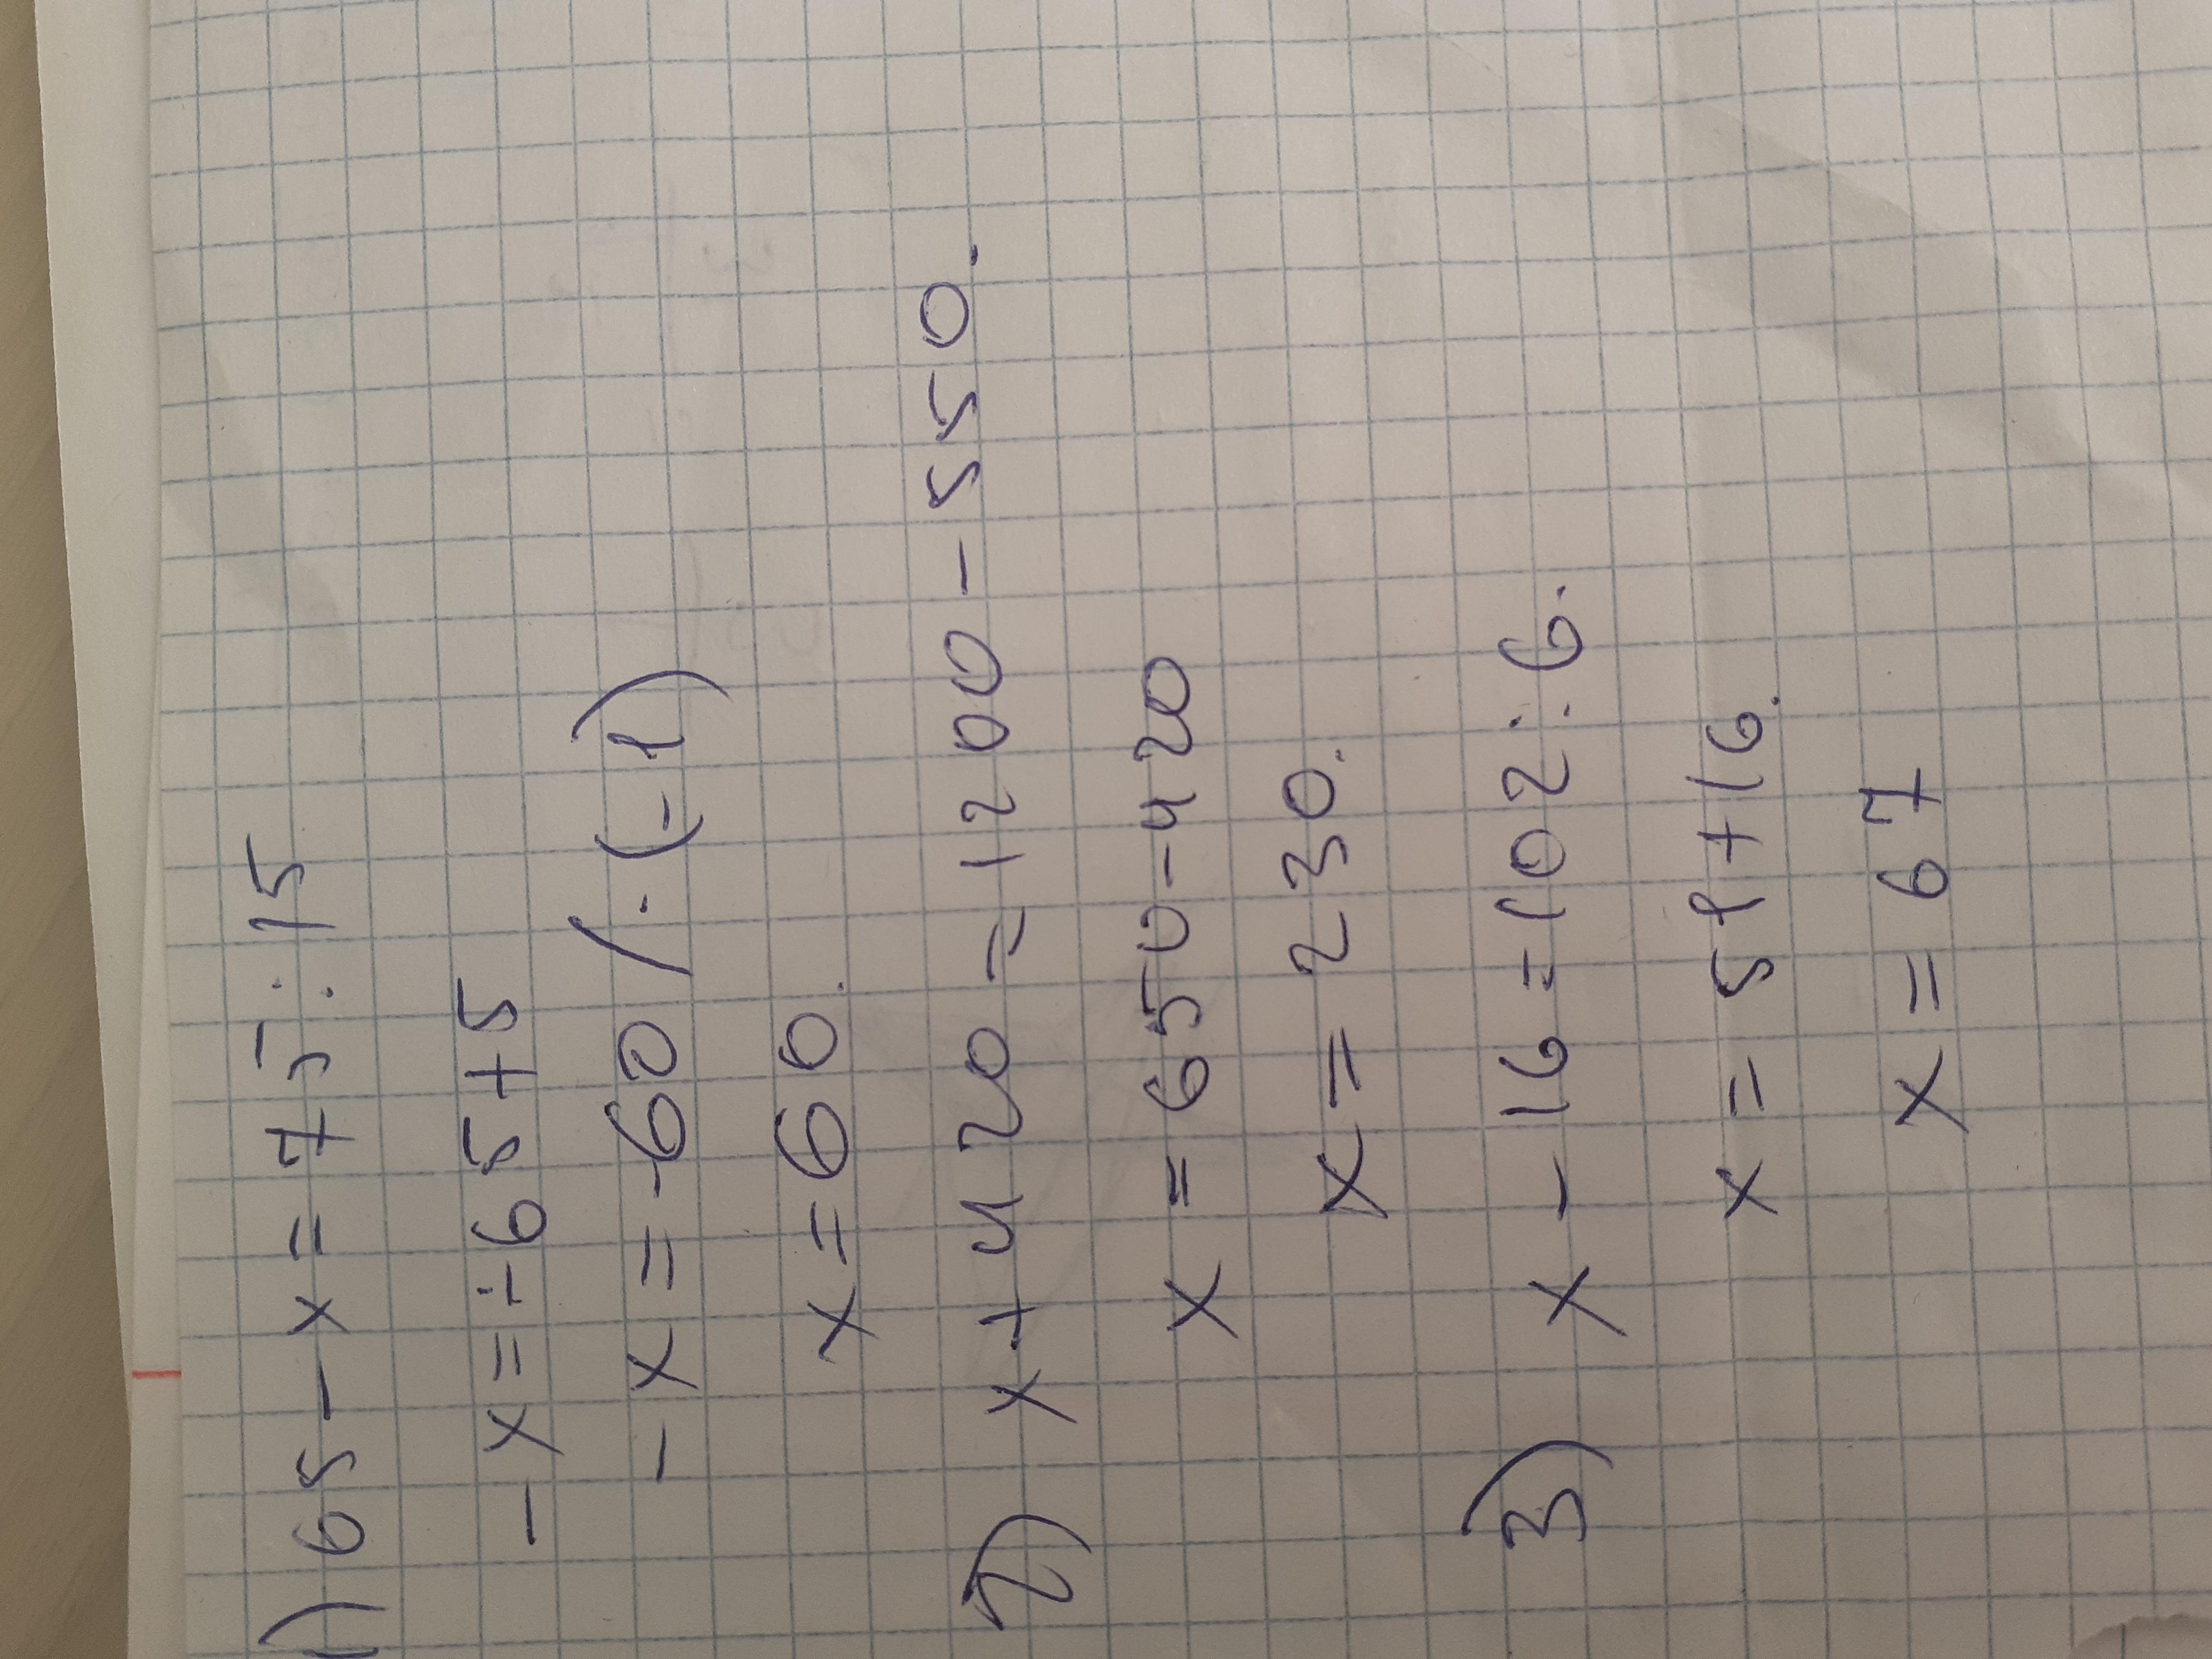 1) 65 - x = 75 : 15
- x = - 65 + 5
- x = - 60 / · (-1)
x = 60.
2) x + 420 = 1200 - 550.
x = 650 - 420
x = 230.
3) x - 16 = 102 : 6.
x = 51 + 16.
x = 67